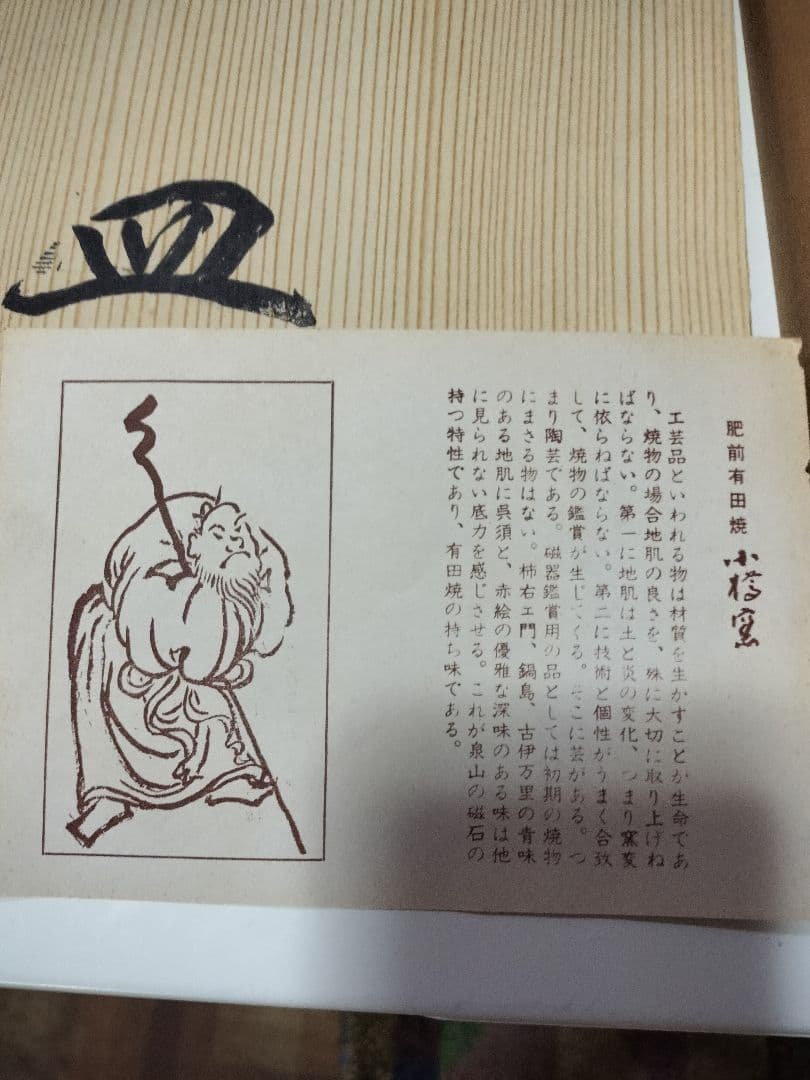 皿
肥前有田焼 小樽窯
工芸品といわれる物は材質を生かすことが生命であ
り、焼物の場合地肌の良さを、殊に大切に取り上げね
ばならない。第一に地肌は土と炎の変化、つまり窯変
に依らねばならない。第二に技術と個性がうまく合致
して、焼物の鑑賞が生じてくる。そこに芸がある。つ
まり陶芸である。磁器鑑賞用の品としては初期の焼物
にまさる物はない。柿右ェ門、鍋島、古伊万里の青味
のある地肌に呉須と、赤絵の優雅な深味のある味は他
に見られない底力を感じさせる。これが泉山の磁石の
持つ特性であり、有田焼の持ち味である。